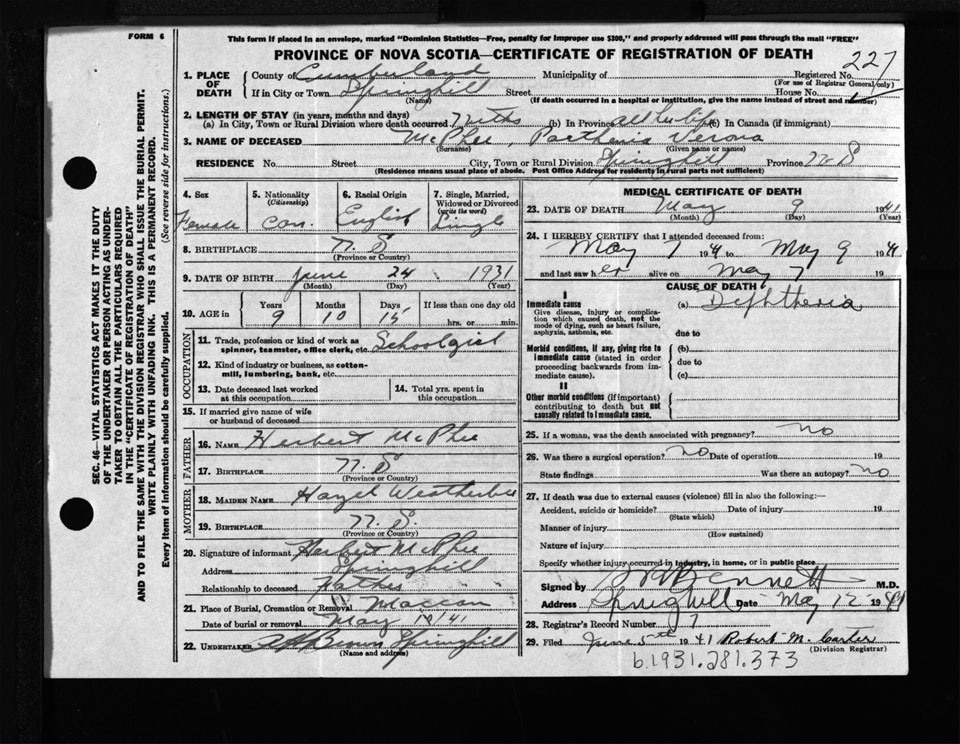 FORM 6
This form if placed in an envelope, marked "Dominion Statistics—Free, penalty for improper use $300," and properly addressed will pass through the mail "FREE"
PROVINCE OF NOVA SCOTIA—CERTIFICATE OF REGISTRATION OF DEATH
227
1. PLACE OF DEATH County of Cumberland Municipality of Registered No.
(For use of Registrar General only)
If in City or Town Springhill Street House No.
(Name) (If death occurred in a hospital or institution, give the name instead of street and number)
2. LENGTH OF STAY (in years, months and days)
(a) In City, Town or Rural Division where death occurred 7 mths (b) In Province all her life (c) In Canada (if immigrant)
3. NAME OF DECEASED McPhee, Verona
(Surname) (Given name or names)
RESIDENCE No. Street City, Town or Rural Division Springhill Province N.S
(Residence means usual place of abode. Post Office Address for residents in rural parts not sufficient)
4. Sex Female
5. Nationality (Citizenship) Can.
6. Racial Origin English
7. Single, Married, Widowed or Divorced (write the word) Single
8. BIRTHPLACE N. S
(Province or Country)
9. DATE OF BIRTH June 24 1931
(Month) (Day) (Year)
10. AGE in Years 9 Months 10 Days 15 If less than one day old hrs. or min.
OCCUPATION
11. Trade, profession or kind of work as spinner, teamster, office clerk, etc. Schoolgirl
12. Kind of industry or business, as cotton-mill, lumbering, bank, etc.
13. Date deceased last worked at this occupation
14. Total yrs. spent in this occupation
15. If married give name of wife or husband of deceased
FATHER
16. NAME Herbert McPhee
17. BIRTHPLACE N. S
(Province or Country)
MOTHER
18. MAIDEN NAME Hazel Weatherbee
19. BIRTHPLACE N. S.
(Province or Country)
20. Signature of informant Herbert McPhee
Address Springhill
Relationship to deceased Father
21. Place of Burial, Cremation or Removal Maccan
Date of burial or removal May 10/41
22. UNDERTAKER Brown Springhill
(Name and address)
MEDICAL CERTIFICATE OF DEATH
23. DATE OF DEATH May 9 1941
(Month) (Day)
24. I HEREBY CERTIFY that I attended deceased from:
May 7 1941 to May 9 1941
and last saw her alive on May 7 19
CAUSE OF DEATH
I
Immediate cause (a) Diphtheria
Give disease, injury or complication which caused death, not the mode of dying, such as heart failure, asphyxia, asthenia, etc.
due to
Morbid conditions, if any, giving rise to immediate cause (stated in order proceeding backwards from immediate cause).
(b)
due to
(c)
II
Other morbid conditions (if important) contributing to death but not causally related to immediate cause.
25. If a woman, was the death associated with pregnancy? no
26. Was there a surgical operation? no Date of operation 19
State findings Was there an autopsy? no
27. If death was due to external causes (violence) fill in also the following:—
Accident, suicide or homicide? Date of injury 19
(State which)
Manner of injury
(How sustained)
Nature of injury
Specify whether injury occurred in industry, in home, or in public place
Signed by Bennett M.D.
Address Springhill Date May 12 1941
28. Registrar's Record Number 7
29. Filed June 5th 1941 Robert M. Carter
(Division Registrar)
b.1931.281.373
SEC. 46—VITAL STATISTICS ACT MAKES IT THE DUTY
OF THE UNDERTAKER OR PERSON ACTING AS UNDER-
TAKER TO OBTAIN ALL THE PARTICULARS REQUIRED
IN THE "CERTIFICATE OF REGISTRATION OF DEATH"
AND TO FILE THE SAME WITH THE DIVISION REGISTRAR WHO SHALL ISSUE THE BURIAL PERMIT.
WRITE PLAINLY WITH UNFADING INK. THIS IS A PERMANENT RECORD.
Every item of information should be carefully supplied. (See reverse side for instructions.)